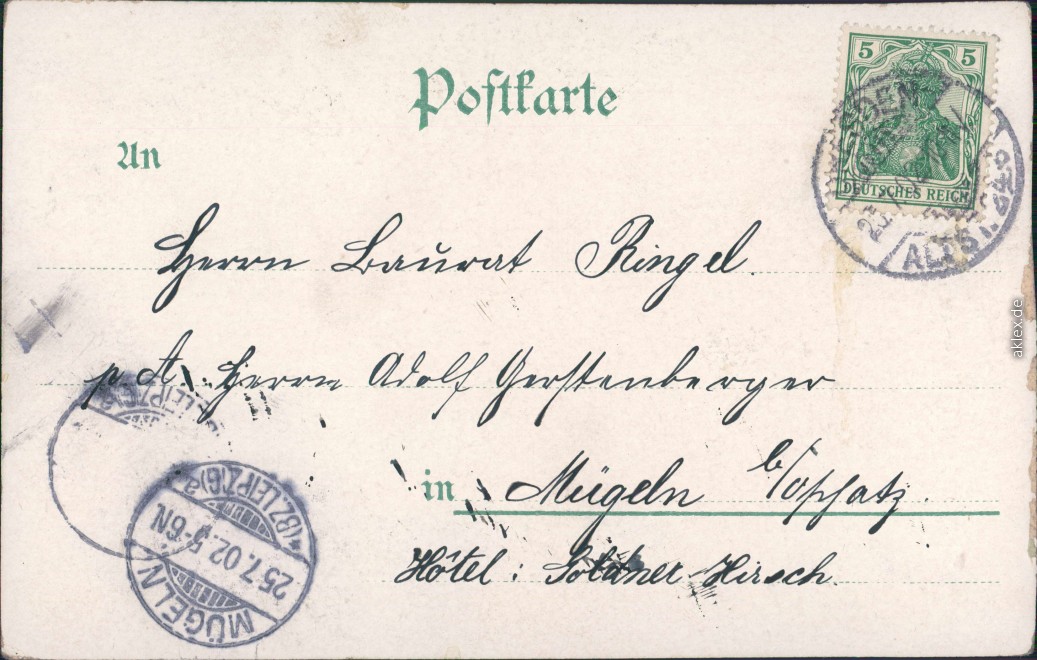 Postkarte
5 5
DEUTSCHES REICH
ALTST.
An
Herrn Baurat Ringel.
p. A. Herrn Adolf Gerstenberger
in Mügeln b/Oschatz.
Hôtel: Goldner Hirsch.
(BZ. LEIPZIG) a
25.7.02. 5-6N.
MÜGELN
aklex.de